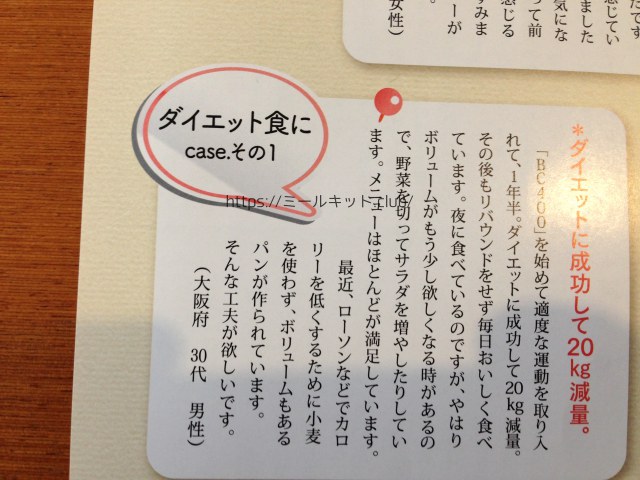 女性）
ーが
すみま
感じる
って前
気にな
ました
感じてい
だです
ダイエット食に
case.その1
＊ダイエットに成功して20kg減量。
「BC400」を始めて適度な運動を取り入
れて、1年半。ダイエットに成功して20kg減量。
その後もリバウンドをせず毎日おいしく食べ
ています。夜に食べているのですが、やはり
ボリュームがもう少し欲しくなる時があるの
で、野菜を切ってサラダを増やしたりしてい
ます。メニューはほとんどが満足しています。
最近、ローソンなどでカロ
リーを低くするために小麦
を使わず、ボリュームもある
パンが作られています。
そんな工夫が欲しいです。
（大阪府　30代　男性）
https://ミールキット.club/